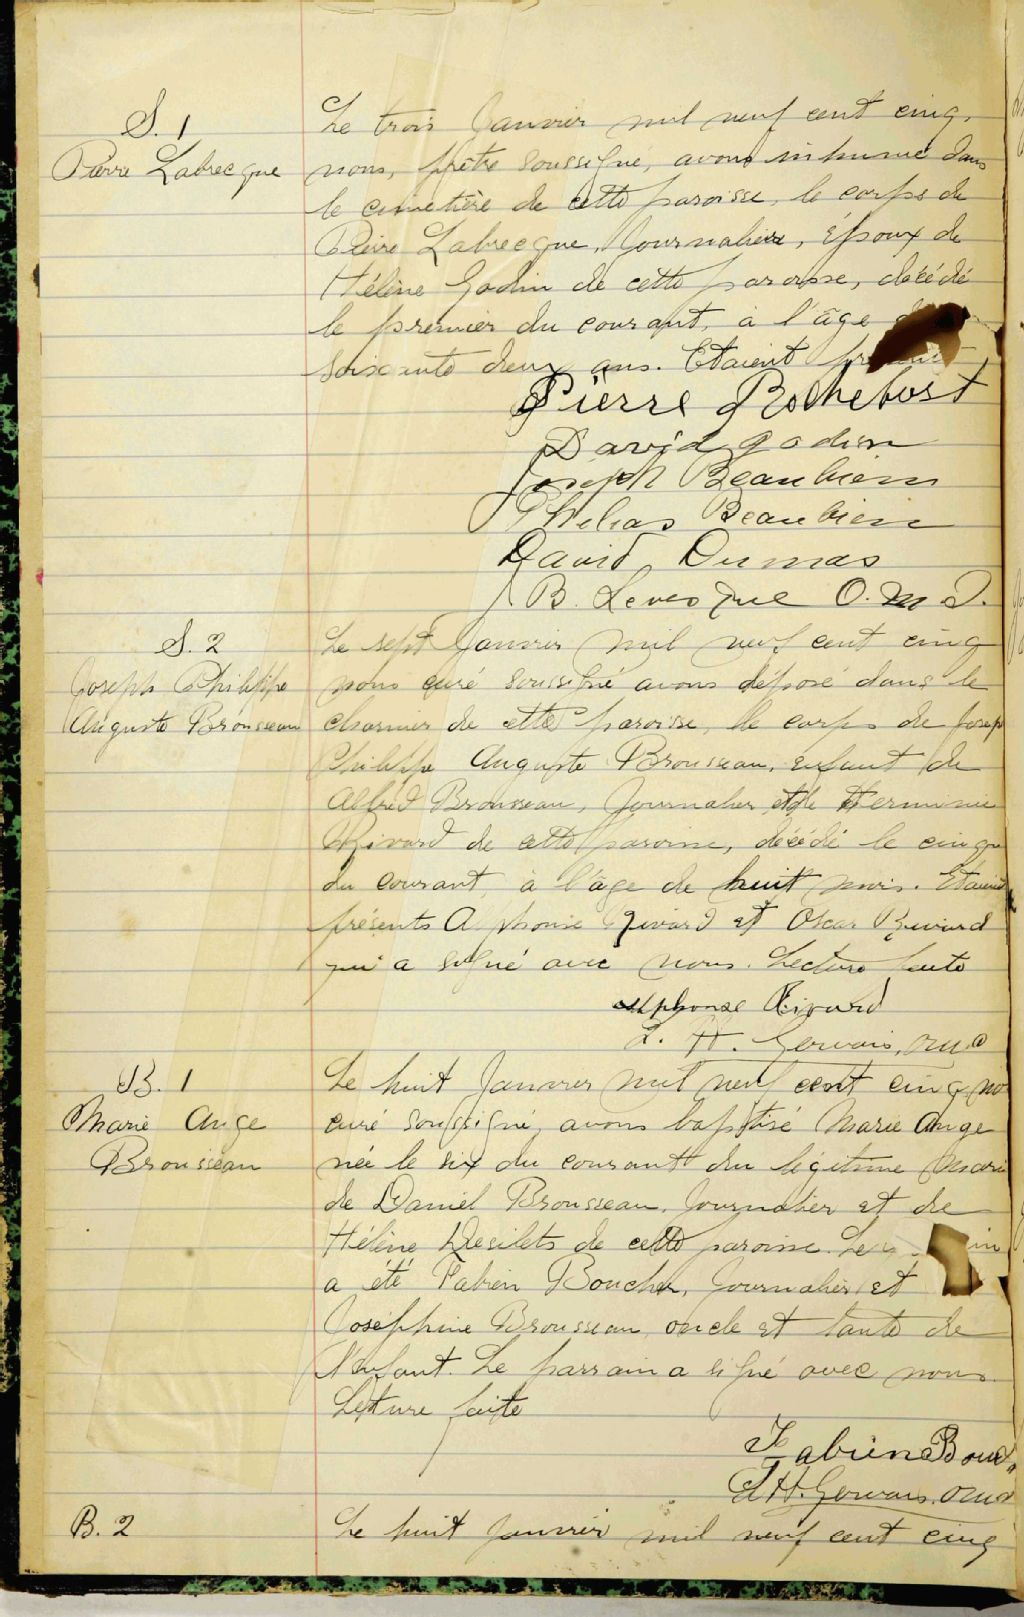 S. 1
Pierre Labrecque
Le trois Janvier mil neuf cent cinq,
nous, prêtre soussigné, avons inhumé dans
le cimetière de cette paroisse, le corps de
Pierre Labrecque, Journalier, époux de
Hélène Godin de cette paroisse, décédé
le premier du courant, à l'âge
soixante deux ans. Etaient
Pierre Rochefost
David godin
Joseph Beaubiens
Philias Beaubien
David Dumas
J B. Levesque O. M. I.
S. 2
Joseph Philippe
Auguste Brousseau
Le sept Janvier mil neuf cent cinq
nous curé soussigné avons déposé dans le
charnier de cette paroisse, le corps de Josep
Philippe Auguste Brousseau, enfant de
Alfred Brousseau, Journalier et de Herminie
Rivard de cette paroisse, décédé le cinq
du courant, à l'âge de huit mois. Etaient
présents Alphonse Rivard et Oscar Rivard
qui a signé avec nous. Lecture faite
Alphonse Rivard
L. H. Gervais, omi
B. 1
Marie Ange
Brousseau
Le huit Janvier mil neuf cent cinq no
curé soussigné, avons baptisé Marie Ange
née le six du courant du légitime Mari
de Daniel Brousseau, Journalier et de
Hélène Desilets de cette paroisse. Le in
a été Fabien Boucher, Journalier et
Joséphine Brousseau, oncle et tante de
l'enfant. Le parrain a signé avec nous.
Lecture faite
Fabien Bouch
L H. Gervais, omi
B. 2
Le huit Janvier mil neuf cent cinq